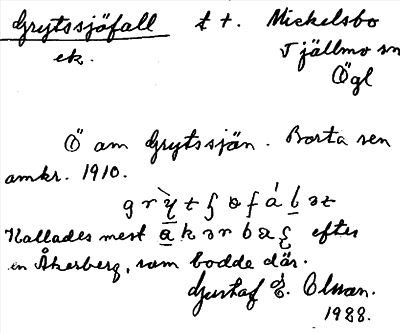 Grytssjöfall t t. Mickelsbo
ek. Tjällmo sn
Ögl
Ö om Grytssjön. Borta sen
omkr. 1910.
Kallades mest efter
en Åkerberg, som bodde där.
Gustaf E. Olsson.
1988.